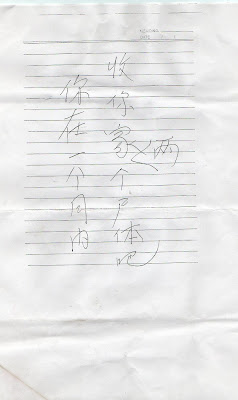 你在一个月内
收你家两个尸体吧